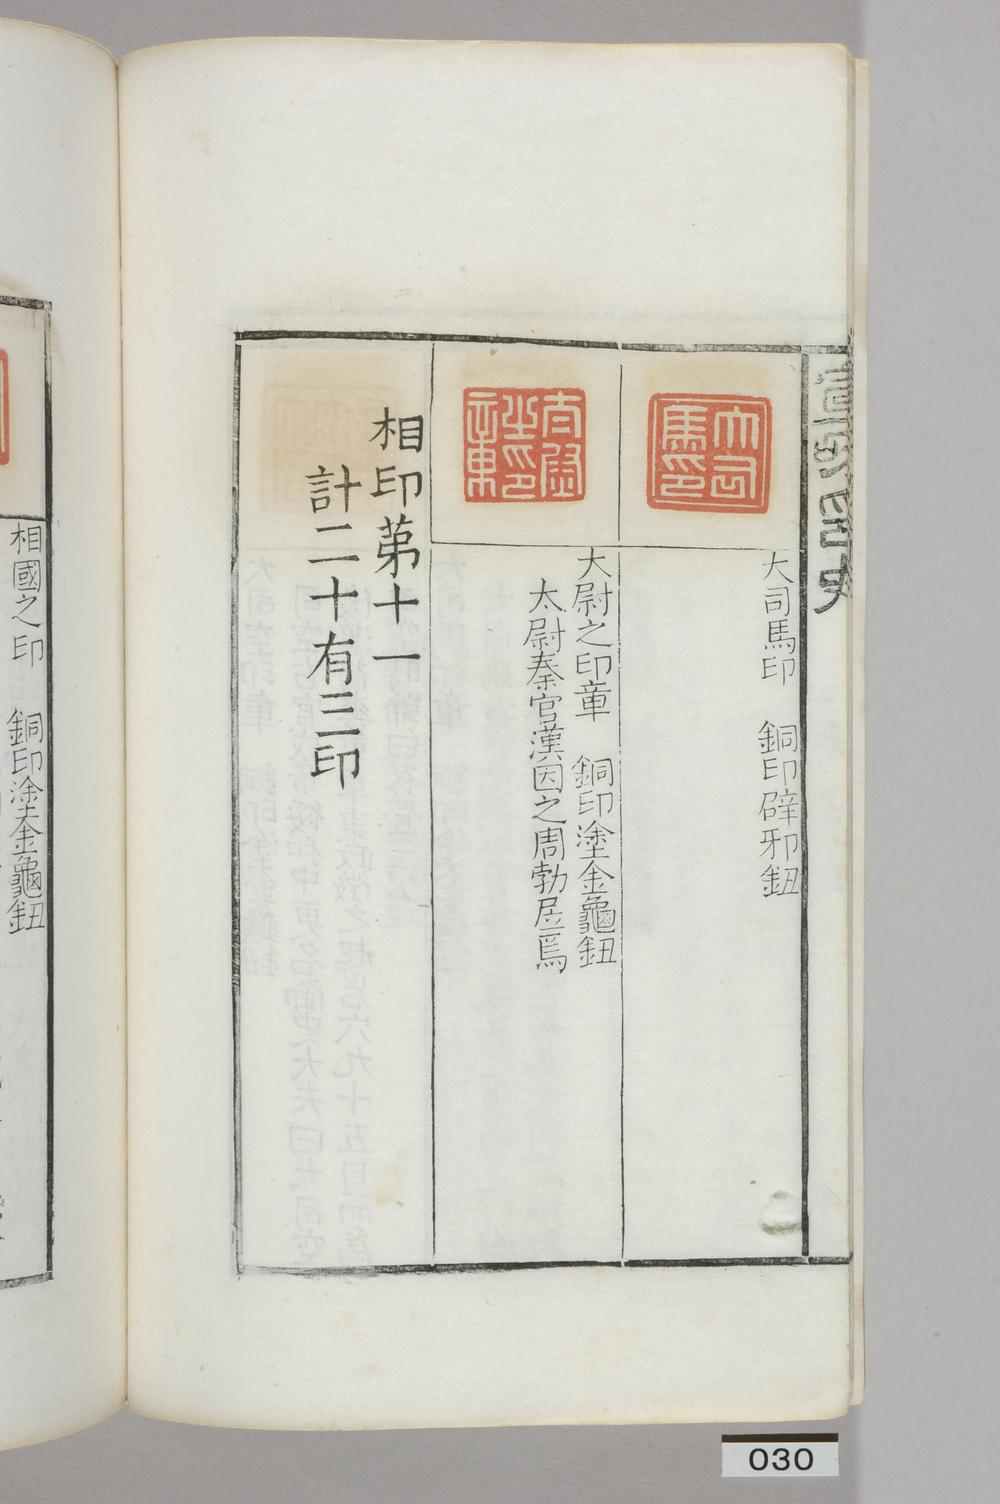 大司馬印　銅印辟邪鈕
大尉之印章　銅印塗金龜鈕
太尉秦官漢因之周勃居焉
相印第十一
計二十有三印
相國之印　銅印塗金龜鈕
030